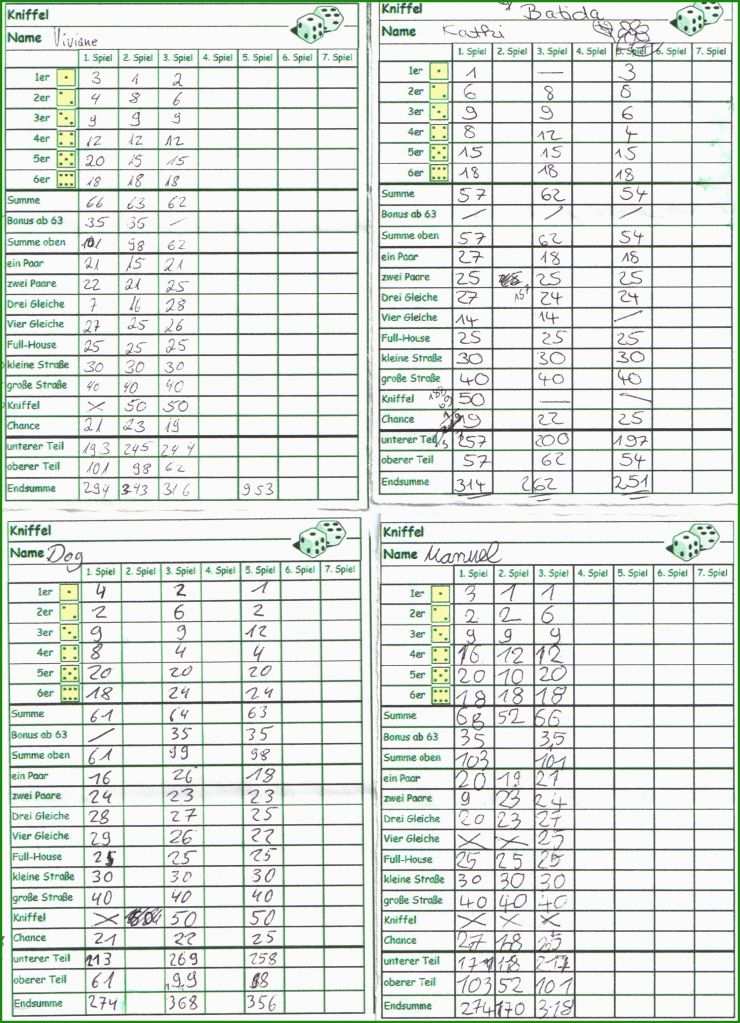 Kniffel
Name Viviane
1. Spiel 2. Spiel 3. Spiel 4. Spiel 5. Spiel 6. Spiel 7. Spiel
1er 3 1 2
2er 4 8 6
3er 9 9 9
4er 12 12 12
5er 20 15 15
6er 18 18 18
Summe 66 63 62
Bonus ab 63 35 35 –
Summe oben 101 98 62
ein Paar 21 15 21
zwei Paare 22 21 25
Drei Gleiche 7 16 28
Vier Gleiche 27 25 26
Full-House 25 25 25
kleine Straße 30 30 30
große Straße 40 40 40
Kniffel X 50 50
Chance 21 23 19
unterer Teil 193 245 244
oberer Teil 101 98 62
Endsumme 294 343 316 953
Kniffel Batida
Name Kathi
1. Spiel 2. Spiel 3. Spiel 4. Spiel 5. Spiel 6. Spiel 7. Spiel
1er 1 — 3
2er 6 8 8
3er 9 9 6
4er 8 12 4
5er 15 15 15
6er 18 18 18
Summe 57 62 54
Bonus ab 63 / / /
Summe oben 57 62 54
ein Paar 27 18 18
zwei Paare 25 25 25
Drei Gleiche 27 24 24
Vier Gleiche 14 14 /
Full-House 25 25 25
kleine Straße 30 30 30
große Straße 40 40 40
Kniffel 50 — —
Chance 19 22 25
unterer Teil 257 200 197
oberer Teil 57 62 54
Endsumme 314 262 251
Kniffel
Name Dog
1. Spiel 2. Spiel 3. Spiel 4. Spiel 5. Spiel 6. Spiel 7. Spiel
1er 4 2 1
2er 2 6 2
3er 9 9 12
4er 8 4 4
5er 20 20 20
6er 18 24 24
Summe 61 64 63
Bonus ab 63 / 35 35
Summe oben 61 99 98
ein Paar 16 26 18
zwei Paare 24 23 23
Drei Gleiche 28 27 25
Vier Gleiche 29 26 22
Full-House 25 25 25
kleine Straße 30 30 30
große Straße 40 40 40
Kniffel X 50 50
Chance 21 22 25
unterer Teil 213 269 258
oberer Teil 61 99 98
Endsumme 274 368 356
Kniffel
Name Manuel
1. Spiel 2. Spiel 3. Spiel 4. Spiel 5. Spiel 6. Spiel 7. Spiel
1er 3 1 1
2er 2 2 6
3er 9 9 9
4er 16 12 12
5er 20 10 20
6er 18 18 18
Summe 68 52 66
Bonus ab 63 35 35
Summe oben 103 101
ein Paar 20 19 21
zwei Paare 9 23 24
Drei Gleiche 20 23 27
Vier Gleiche X X 25
Full-House 25 25 25
kleine Straße 30 30 30
große Straße 40 40 40
Kniffel X X X
Chance 27 18 25
unterer Teil 171 118 217
oberer Teil 103 52 101
Endsumme 274 170 318